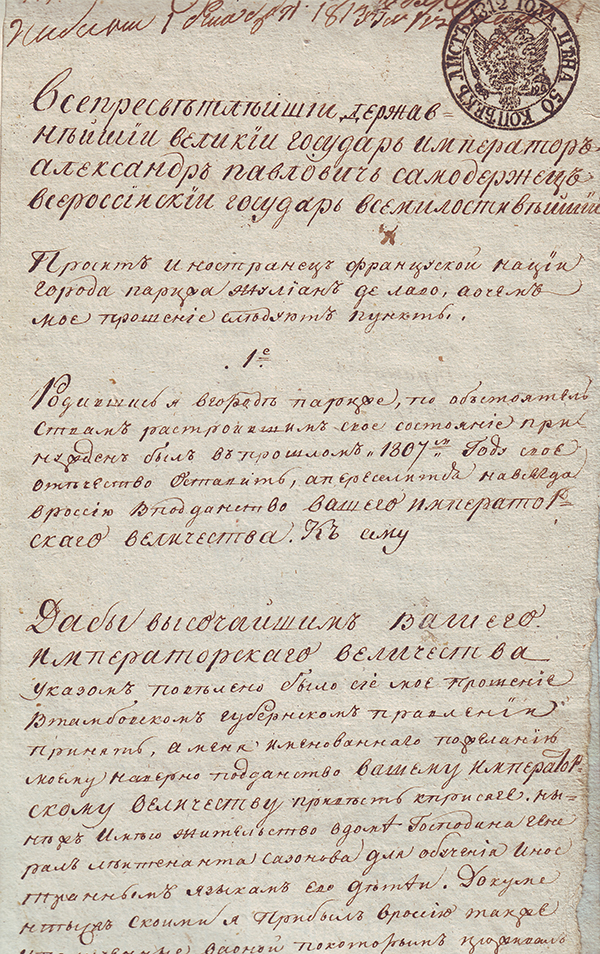 1813
1812 ГОДА. ЦѢНА 50 КОПѢЕКЪ ЛИСТЪ
Всепресвѣтлѣишіи державъ=
нѣйшіи великіи государь императоръ
александръ павловичъ самодержецъ
всероссінскіи государь всемилостивѣйшіи
Проситъ иностранецъ француской націи
города парижа жулианъ де лаво, а очемъ
мое прошеніе слѣдуютъ пункты.
1е
Родившись я вгородѣ парижѣ, по обстоятель
ствамъ растроившимъ свое состояніе при
нужденъ былъ въпрошломъ 1807мъ Году свое
отѣчество Оставить, а переселится навсегда
вроссію вподданство вашего император
скаго величества. Къ сему
Дабы высочайшимъ вашего
императорскаго величества
указомъ повѣлено было сіе мое прошеніе
втамбовскомъ губернскомъ правленіи
принять, а меня именованнаго пожеланію
моему наверно подданство вашему император
скому величеству привѣсть кприсяге. ны=
нѣжъ имѣю жительство вдомѣ Господина Гене
ралъ лѣитенанта сазонова для обученія инос
траннымъ языкамъ его дѣтей. Докуме
нтыжъ скоими я прибылъ вроссію также
вдоной покоторымъ